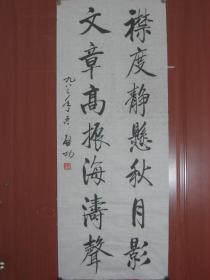 襟度静懸秋月影
文章高振海濤聲
一九八三年春 啟功